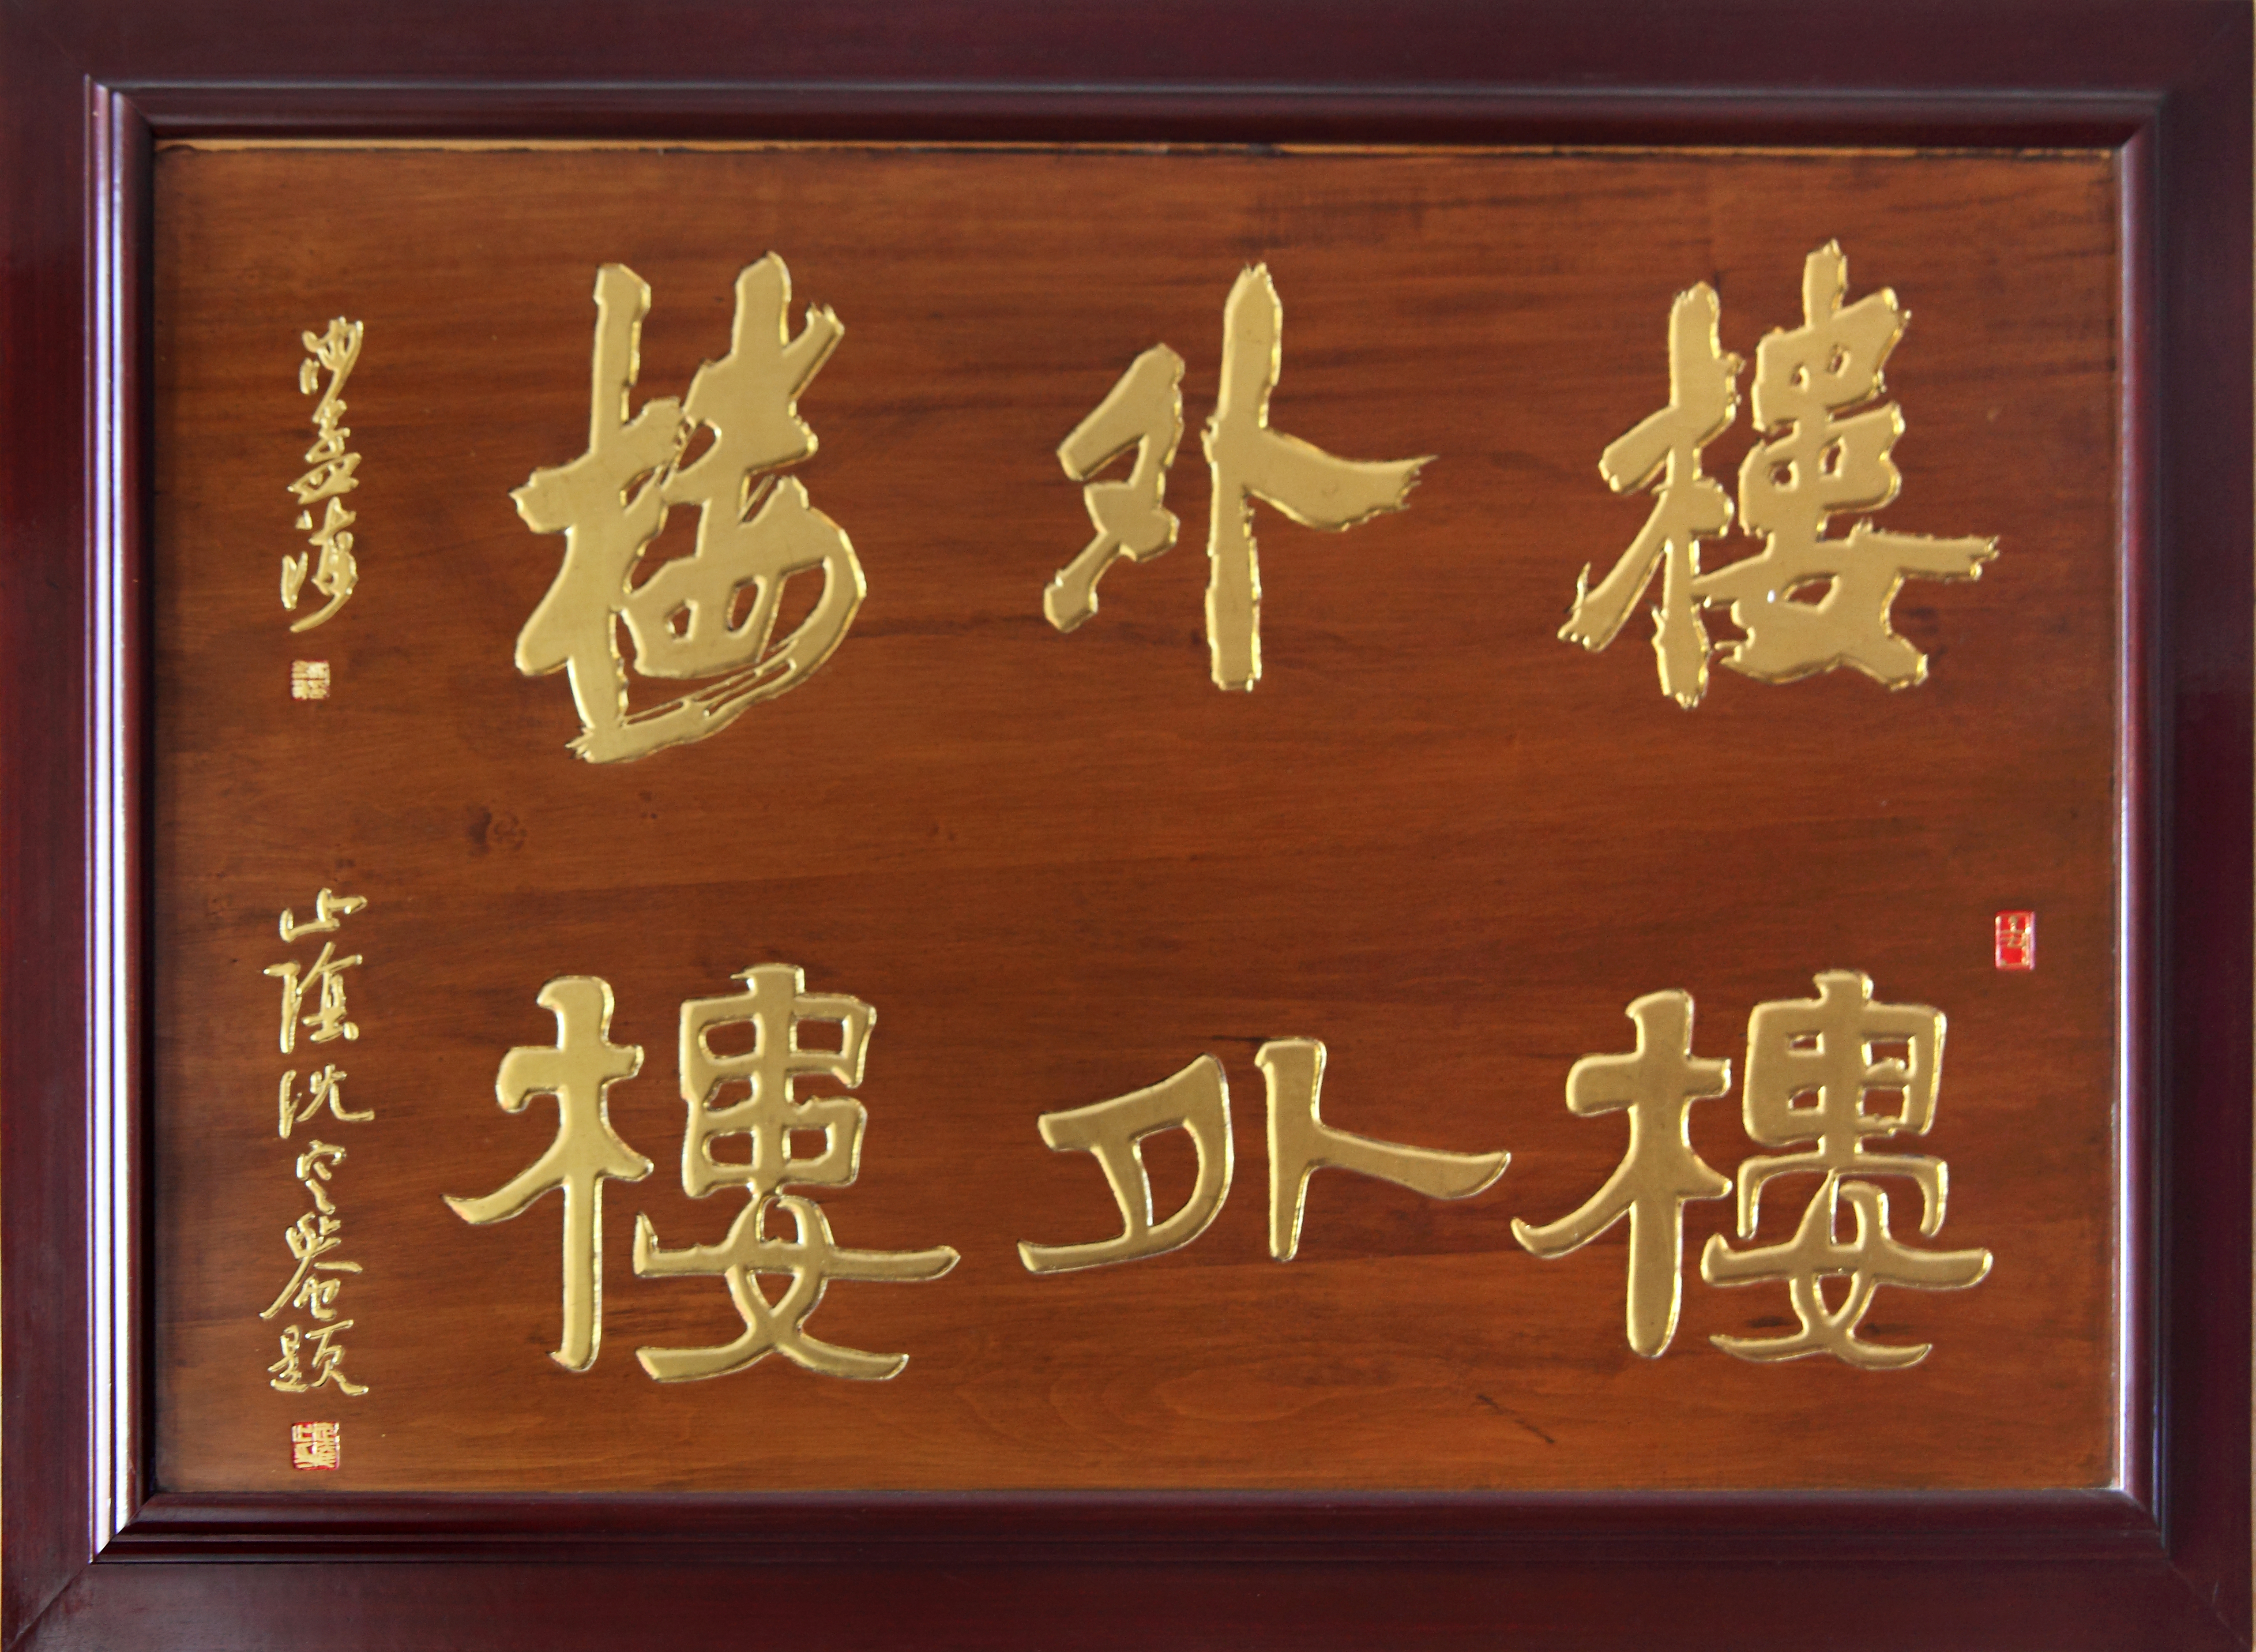 樓外楼
沙孟海
樓外樓
山陰沈定菴題